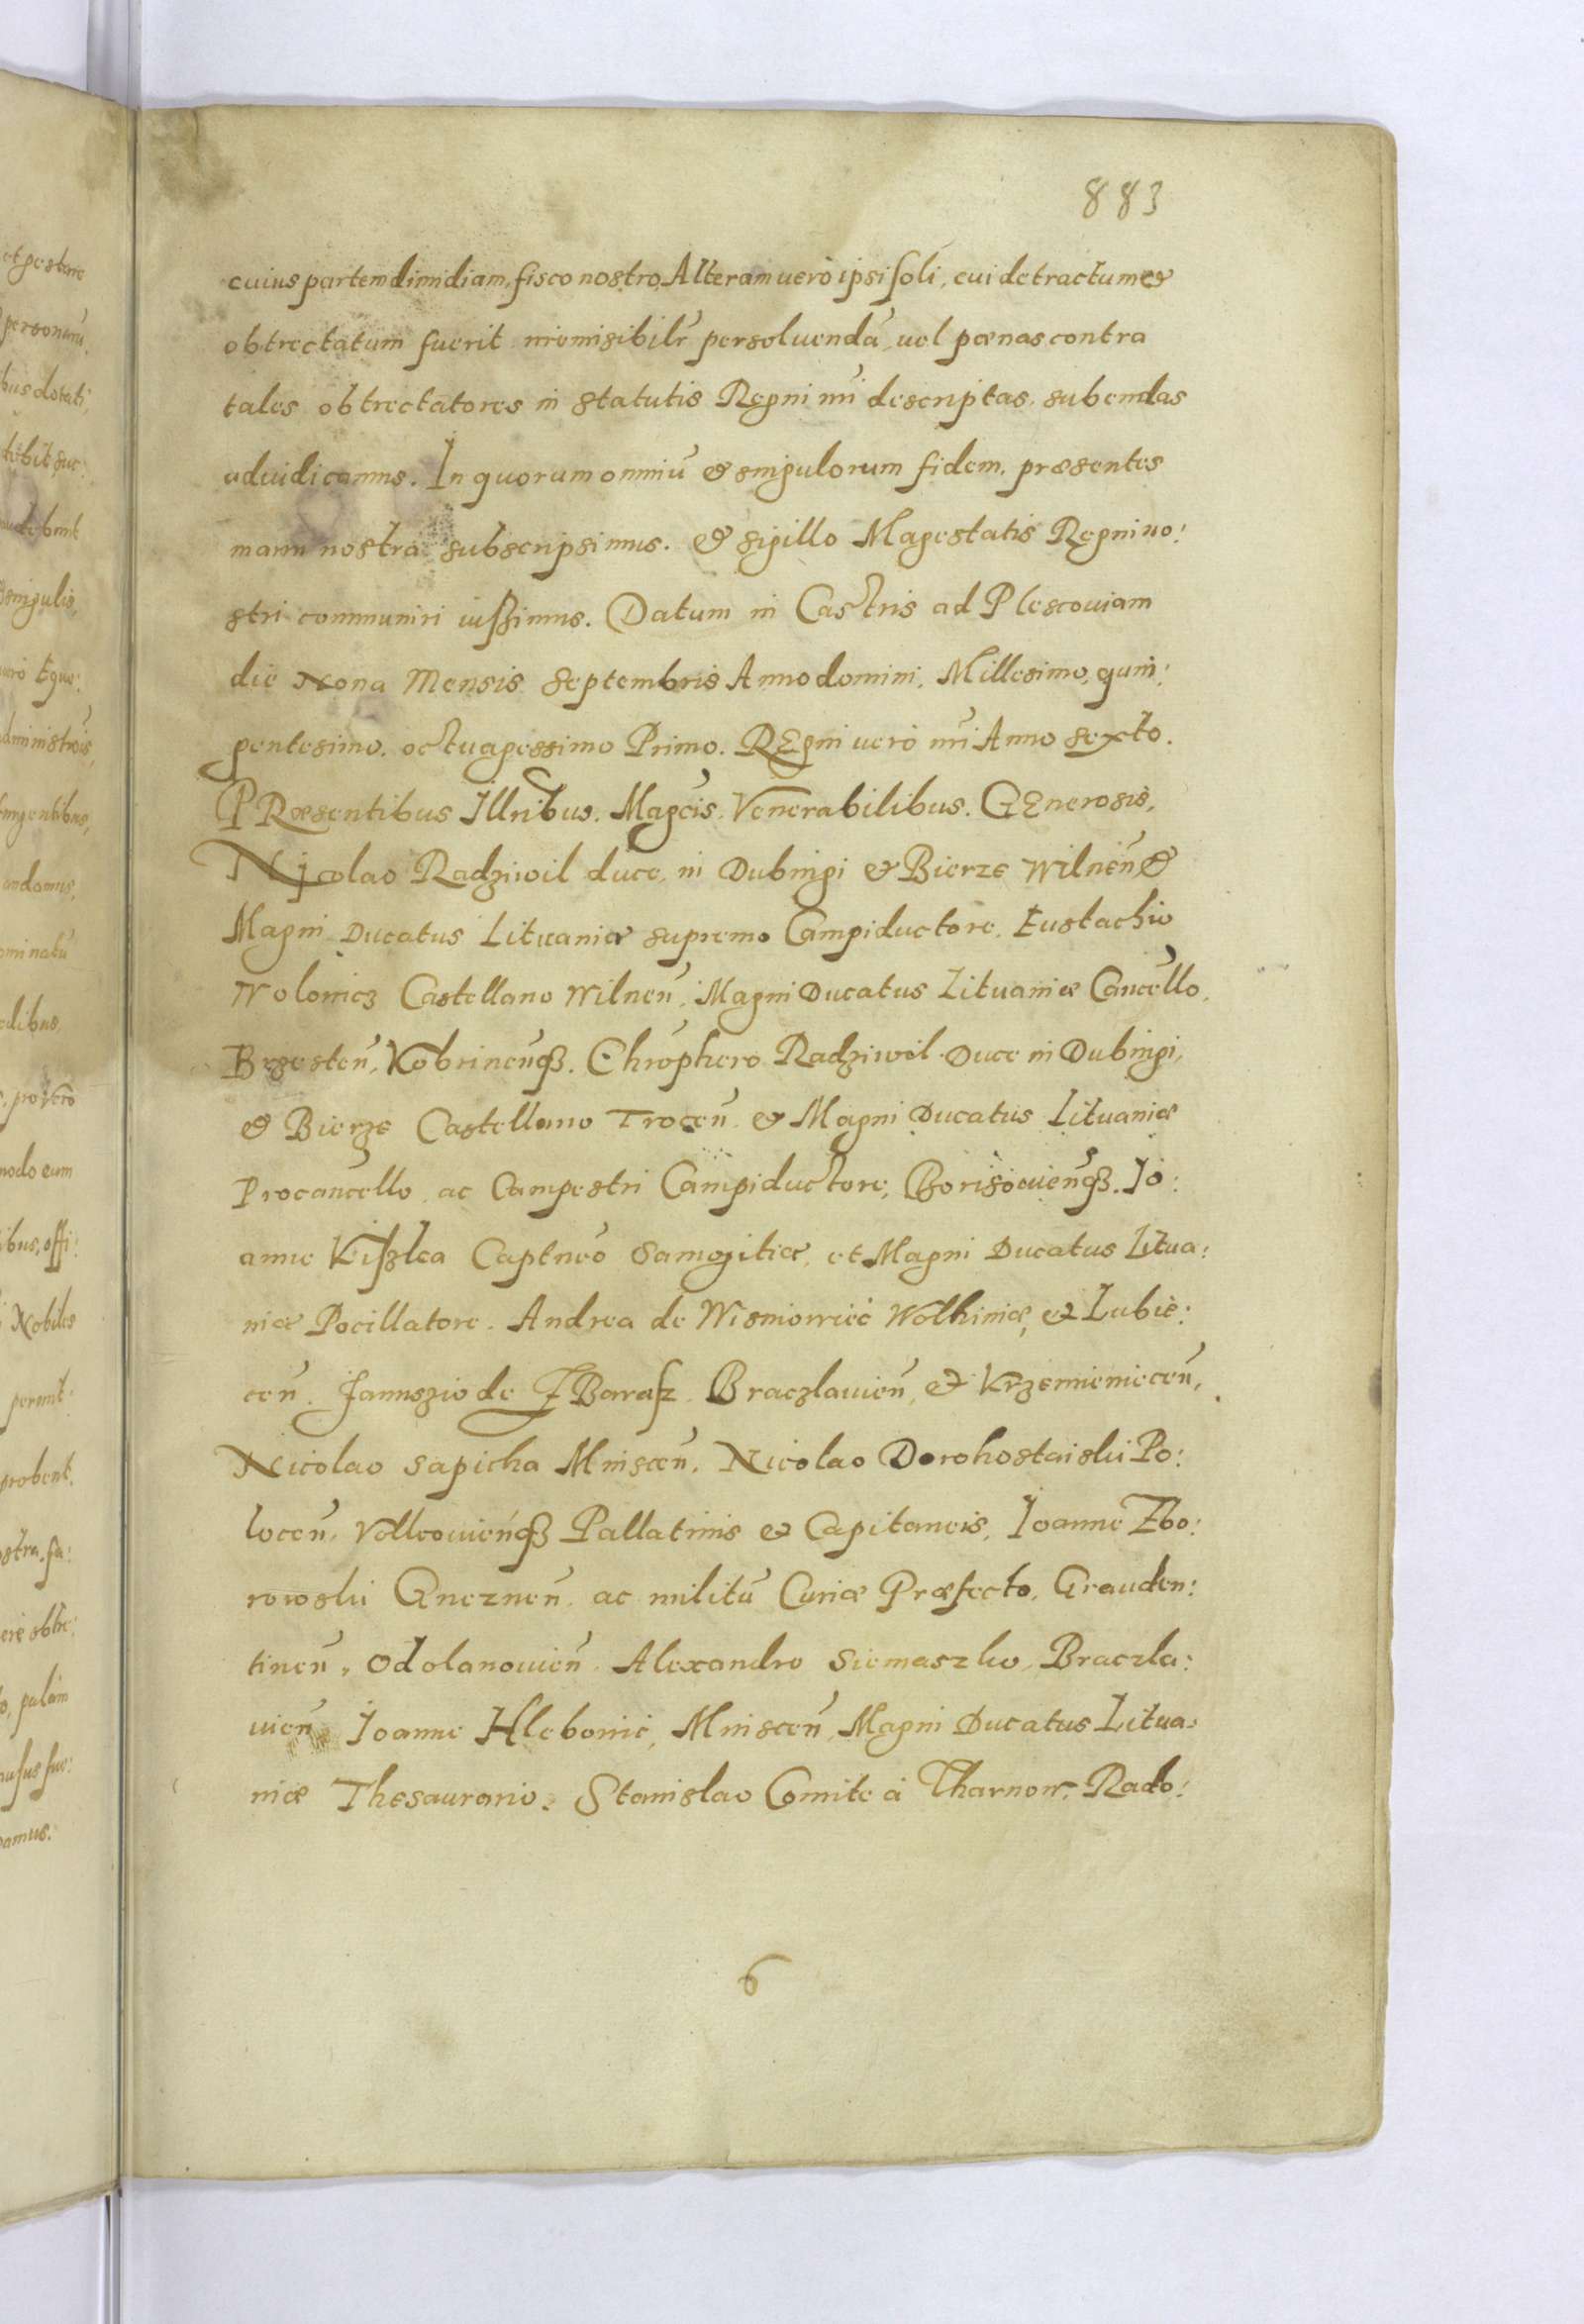 883
cuius partem dimidiam, fisco nostro, Alteram uerò ipsi soli, cui detractum et
obtrectatum fuerit irremisibilr persoluendā, uel pœnas contra
tales obtrectatores in statutis Regni nri descriptas, subeundas
adiudicamus. In quorum omniū & singulorum fidem, præsentes
manu nostra subscripsimus. & sigillo Magestatis Regni no:
stri communiri iussimus. Datum in Castris ad Plescouiam
die Nona Mensis Septembris Anno domini, Millesimo, quin:
gentesimo. octuagessimo Primo. REgni uerò nri Anno sexto.
PRæsentibus Illribus. Magcis. Venerabilibus. GEnerosis,
Nicolao Radziwil duce, in Dubingi & Bierze Wilnen̄ &
Magni Ducatus Lituaniæ supremo Campiductore. Eustachio
Wolowicz Castellano Wilnen̄, Magni Ducatus Lituaniæ Cancello,
Brzesten̄, Kobrinen̄q3. Chrōphero Radziwil Duce in Dubingi,
& Bierze Castellano Trocen̄ & Magni Ducatus Lituaniæ
Procancello ac Campestri Campiductore, Borisouien̄q3. Jo:
anne Kiszka Captneo Samogitiæ, et Magni Ducatus Litua:
niæ Pocillatore. Andrea de Wisniowieć Wolhiniæ, & Lubie:
cen̄. Januszio de ZBarasz Braczlauien̄, & Krzemieniecen̄,
Nicolao Sapieha Minscen̄, Nicolao Dorohostaiski Po:
locen̄, Volkouien̄q3 Pallatinis & Capitaneis, Joanne Zbo:
rowski Gneznen̄ ac militū Curiæ Præfecto, Grauden:
tinen̄, Odolanouien̄ Alexandro Siemaszko, Braczla:
uien̄ Joanne Hlebowic, Minscen̄, Magni Ducatus Litua:
niæ Thesaurario. Stanislao Comite à Tharnow, Rado:
6